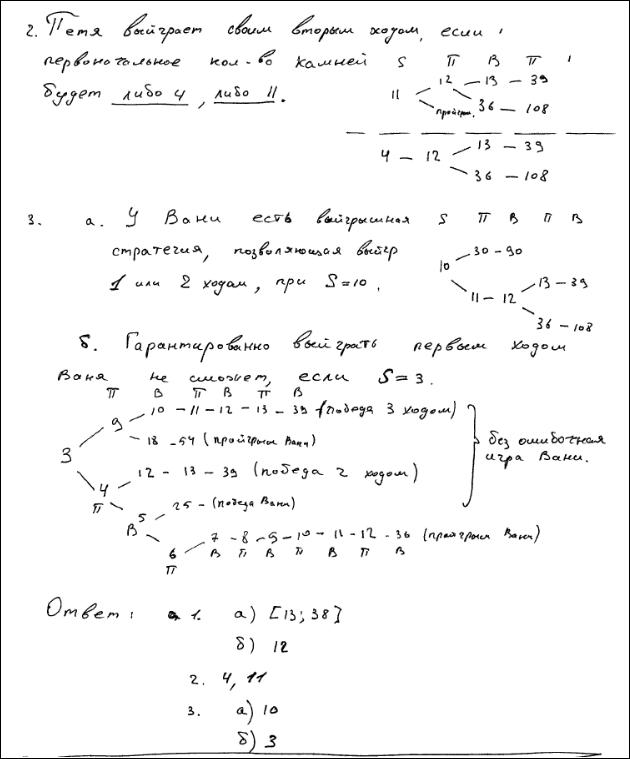 2. Петя выйграет своим вторым ходом, если
первоначальное кол-во камней S П В П
будет либо 4, либо 11. 11 12 – 13 – 39
пройгрыш. 36 – 108
4 – 12 13 – 39
36 – 108
3. а. У Вани есть выйгрышная S П В П В
стратегия, позволяющая выйгр 10 30 – 90
1 или 2 ходам, при S=10. 11 – 12 13 – 39
36 – 108
б. Гарантированно выйграть первым ходом
Ваня не сможет, если S=3.
П В П В П В
9 10 – 11 – 12 – 13 – 39 (победа 3 ходом)
18 – 54 (пройгрыш Вани)
3 без ошибочная
игра Вани.
4 12 – 13 – 39 (победа 2 ходом)
П 5 25 – (победа Вани)
В
6 7 – 8 – 9 – 10 – 11 – 12 – 36 (пройгрыш Вани)
П В П В П В П В
Ответ: 1. а) [13; 38]
б) 12
2. 4, 11
3. а) 10
б) 3